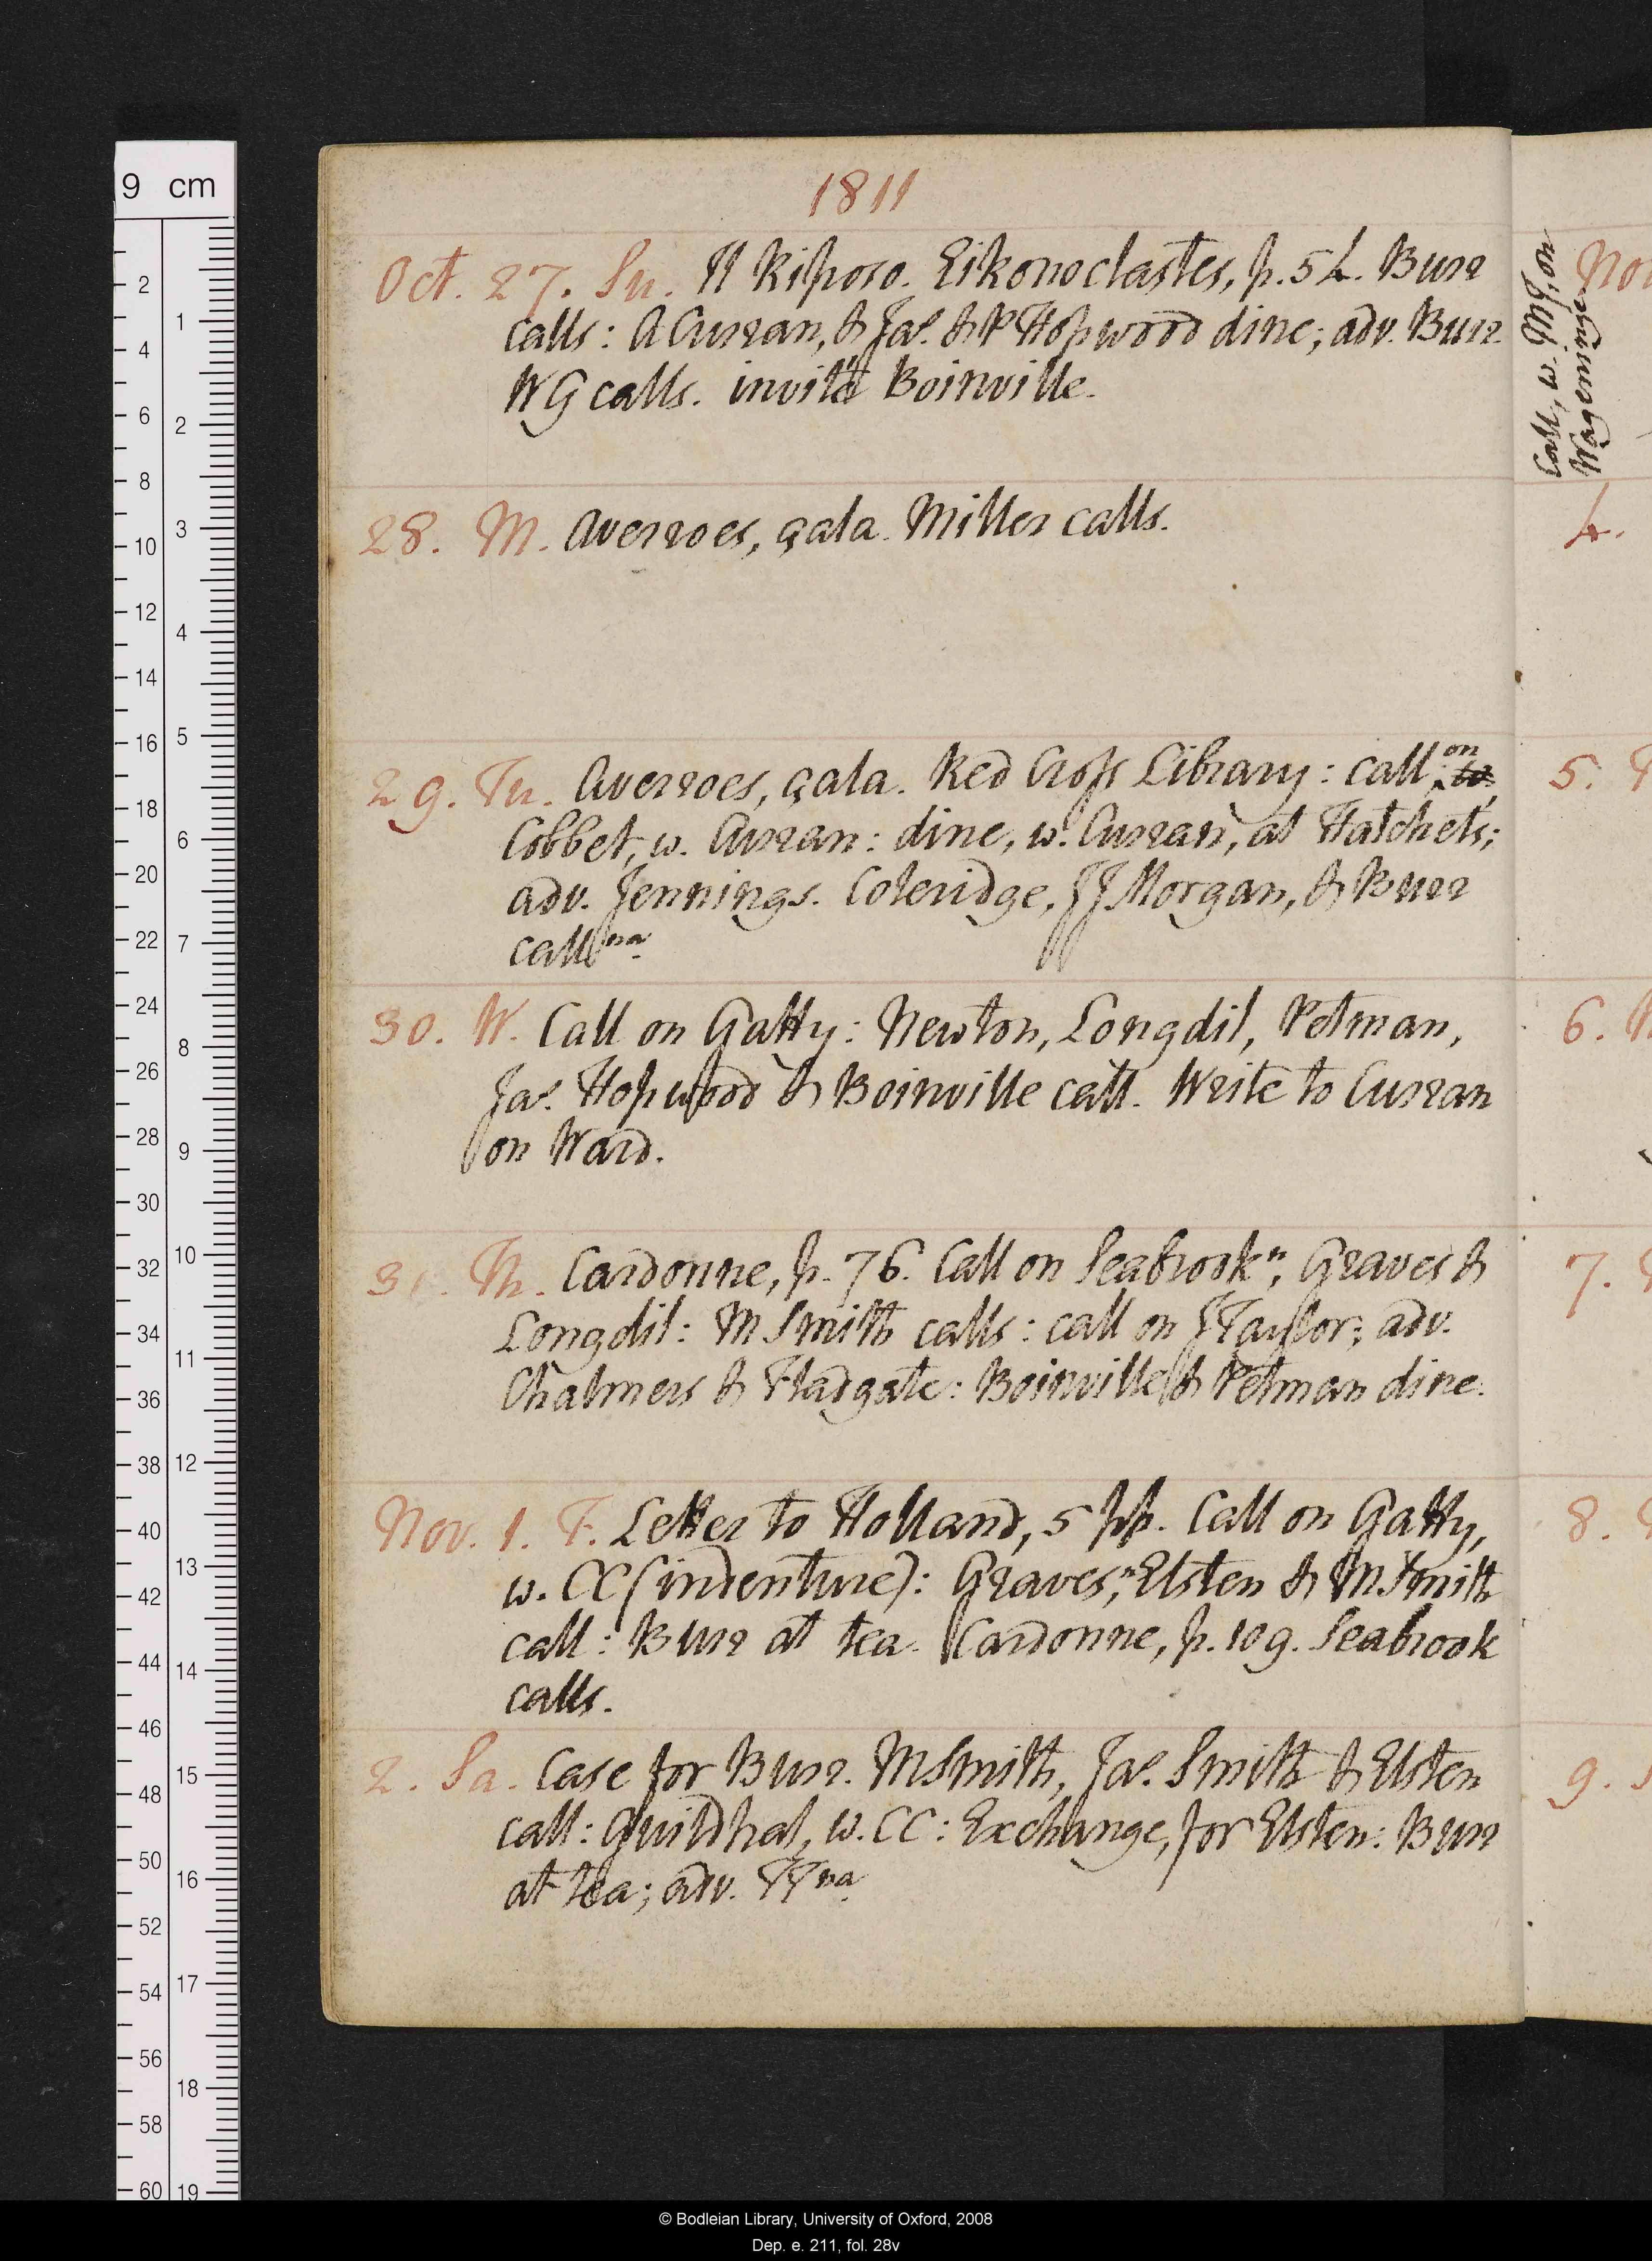 1811
Oct. 27. Su. Il Riposo. Eikonoclastes, p. 54. Burr
calls: A Curran, & Jas. & P Hopwood dine; adv. Burr.
W G calls. invitd Boinville.
28. M. Averroes, çala. Miller calls.
29. Tu. Averroes, çala. Red Cross Library: call on
Cobbet, w. Curran: dine, w. Curran, at Hatchets;
adv. Jennings. Coleridge, J J Morgan, & Burr
call na.
30. W. Call on Gatty: Newton, Longdil, Petman,
Jas. Hopwood & Boinville call. Write to Curran
on Ward.
31. Th. Cardonne, p. 76. Call on Seabrook n, Graves &
Longdil: M Smith calls: call on J Taylor; adv.
Chalmers & Fladgate: Boinville & Petman dine.
Nov. 1. F. Letter to Holland, 5 pp. Call on Gatty,
w. CC (indenture): Graves n, Elsten & M Smith
call: Burr at tea. Cardonne, p. 109. Seabrook
calls.
2. Sa. Case for Burr. M Smith, Jas. Smith & Elsten
call: Guildhal, w. CC: Exchange, for Elsten: Burr
at tea; adv. TT na.
Call, w. MJ, on
Wageninge
Nov
4.
5.
6.
7.
8.
9.
9 cm
2
4
6
8
10
12
14
16
18
20
22
24
26
28
30
32
34
36
38
40
42
44
46
48
50
52
54
56
58
60
1
2
3
4
5
6
7
8
9
10
11
12
13
14
15
16
17
18
19
© Bodleian Library, University of Oxford, 2008
Dep. e. 211, fol. 28v